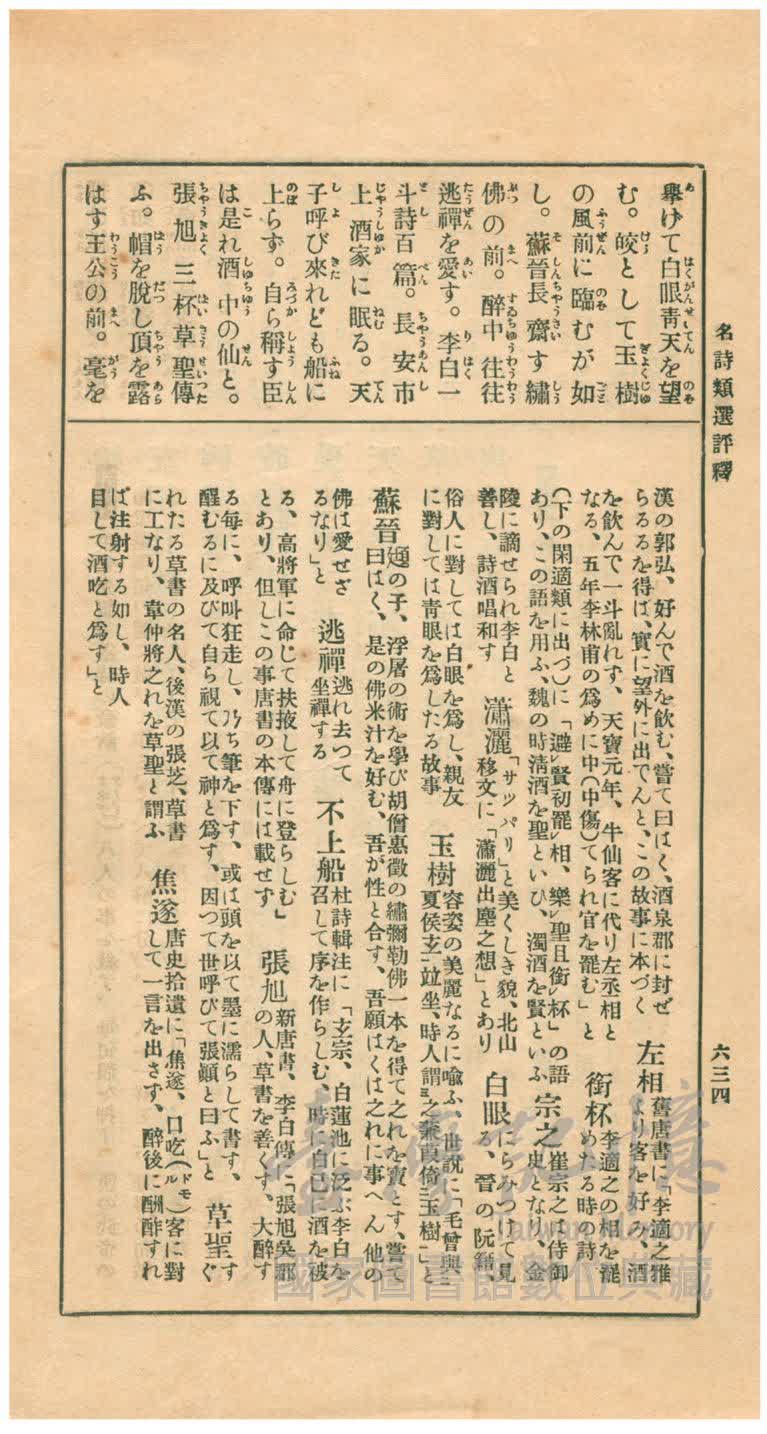 名詩類選評釋
六三四
擧げて白眼靑天を望
む。皎として玉樹
の風前に臨むが如
し。蘇晉長齋す繡
佛の前。醉中往往
逃禪を愛す。李白一
斗詩百篇。長安市
上酒家に眠る。天
子呼び來れども船に
上らず。自ら稱す臣
は是れ酒中の仙と。
張旭三杯草聖傳
ふ。帽を脫し頂を露
はす王公の前。毫を
漢の郭弘、好んで酒を飮む、嘗て曰はく、酒泉郡に封ぜ
らるるを得ば、實に望外に出でんと、この故事に本づく
左相 舊唐書に「李適之雅
より客を好み、酒
を飮んで一斗亂れず、天寶元年、牛仙客に代り左丞相と
なる、五年李林甫の爲めに中(中傷)てられ官を罷む」と
銜杯 李適之の相を罷
めたる時の詩
(下の閑適類に出づ)に「避レ賢初罷レ相、樂レ聖且銜レ杯」の語
あり、この語を用ふ、魏の時淸酒を聖といひ、濁酒を賢といふ
宗之 崔宗之は侍御
史となり、金
陵に謫せられ李白と
善し、詩酒唱和す
瀟灑 「サツパリ」と美くしき貌、北山
移文に「瀟灑出塵之想」とあり
白眼 にらみつけて見
る、晉の阮籍、
俗人に對しては白眼を爲し、親友
に對しては靑眼を爲したる故事
玉樹 容姿の美麗なるに喩ふ、世說に「毛曾與二
夏侯玄一竝坐、時人謂三之蒹葭倚二玉樹一」と
蘇晉 珽の子、浮屠の術を學び胡僧惠徵の繡彌勒佛一本を得て之れを寶とす、嘗て
曰はく、是の佛米汁を好む、吾が性と合す、吾願はくは之れに事へん他の
佛は愛せざ
るなり」と
逃禪 逃れ去つて
坐禪する
不上船 杜詩輯注に「玄宗、白蓮池に泛ぶ李白を
召して序を作らしむ、時に白已に酒を被
る、高將軍に命じて扶掖して舟に登らしむ」
とあり、但しこの事唐書の本傳には載せず
張旭 新唐書、李白傳に「張旭吳郡
の人、草書を善くす、大醉す
る每に、呼叫狂走し、乃ち筆を下す、或は頭を以て墨に濡らして書す、
醒むるに及びて自ら視て以て神と爲す、因つて世呼びて張顚と曰ふ」と
草聖 す
ぐ
れたる草書の名人、後漢の張芝、草書
に工なり、韋仲將之れを草聖と謂ふ
焦遂 唐史拾遺に「焦遂、口吃(ドモル)客に對
して一言を出さず、醉後に酬酢すれ
ば注射する如し、時人
目して酒吃と爲す」と
國家圖書館數位典藏